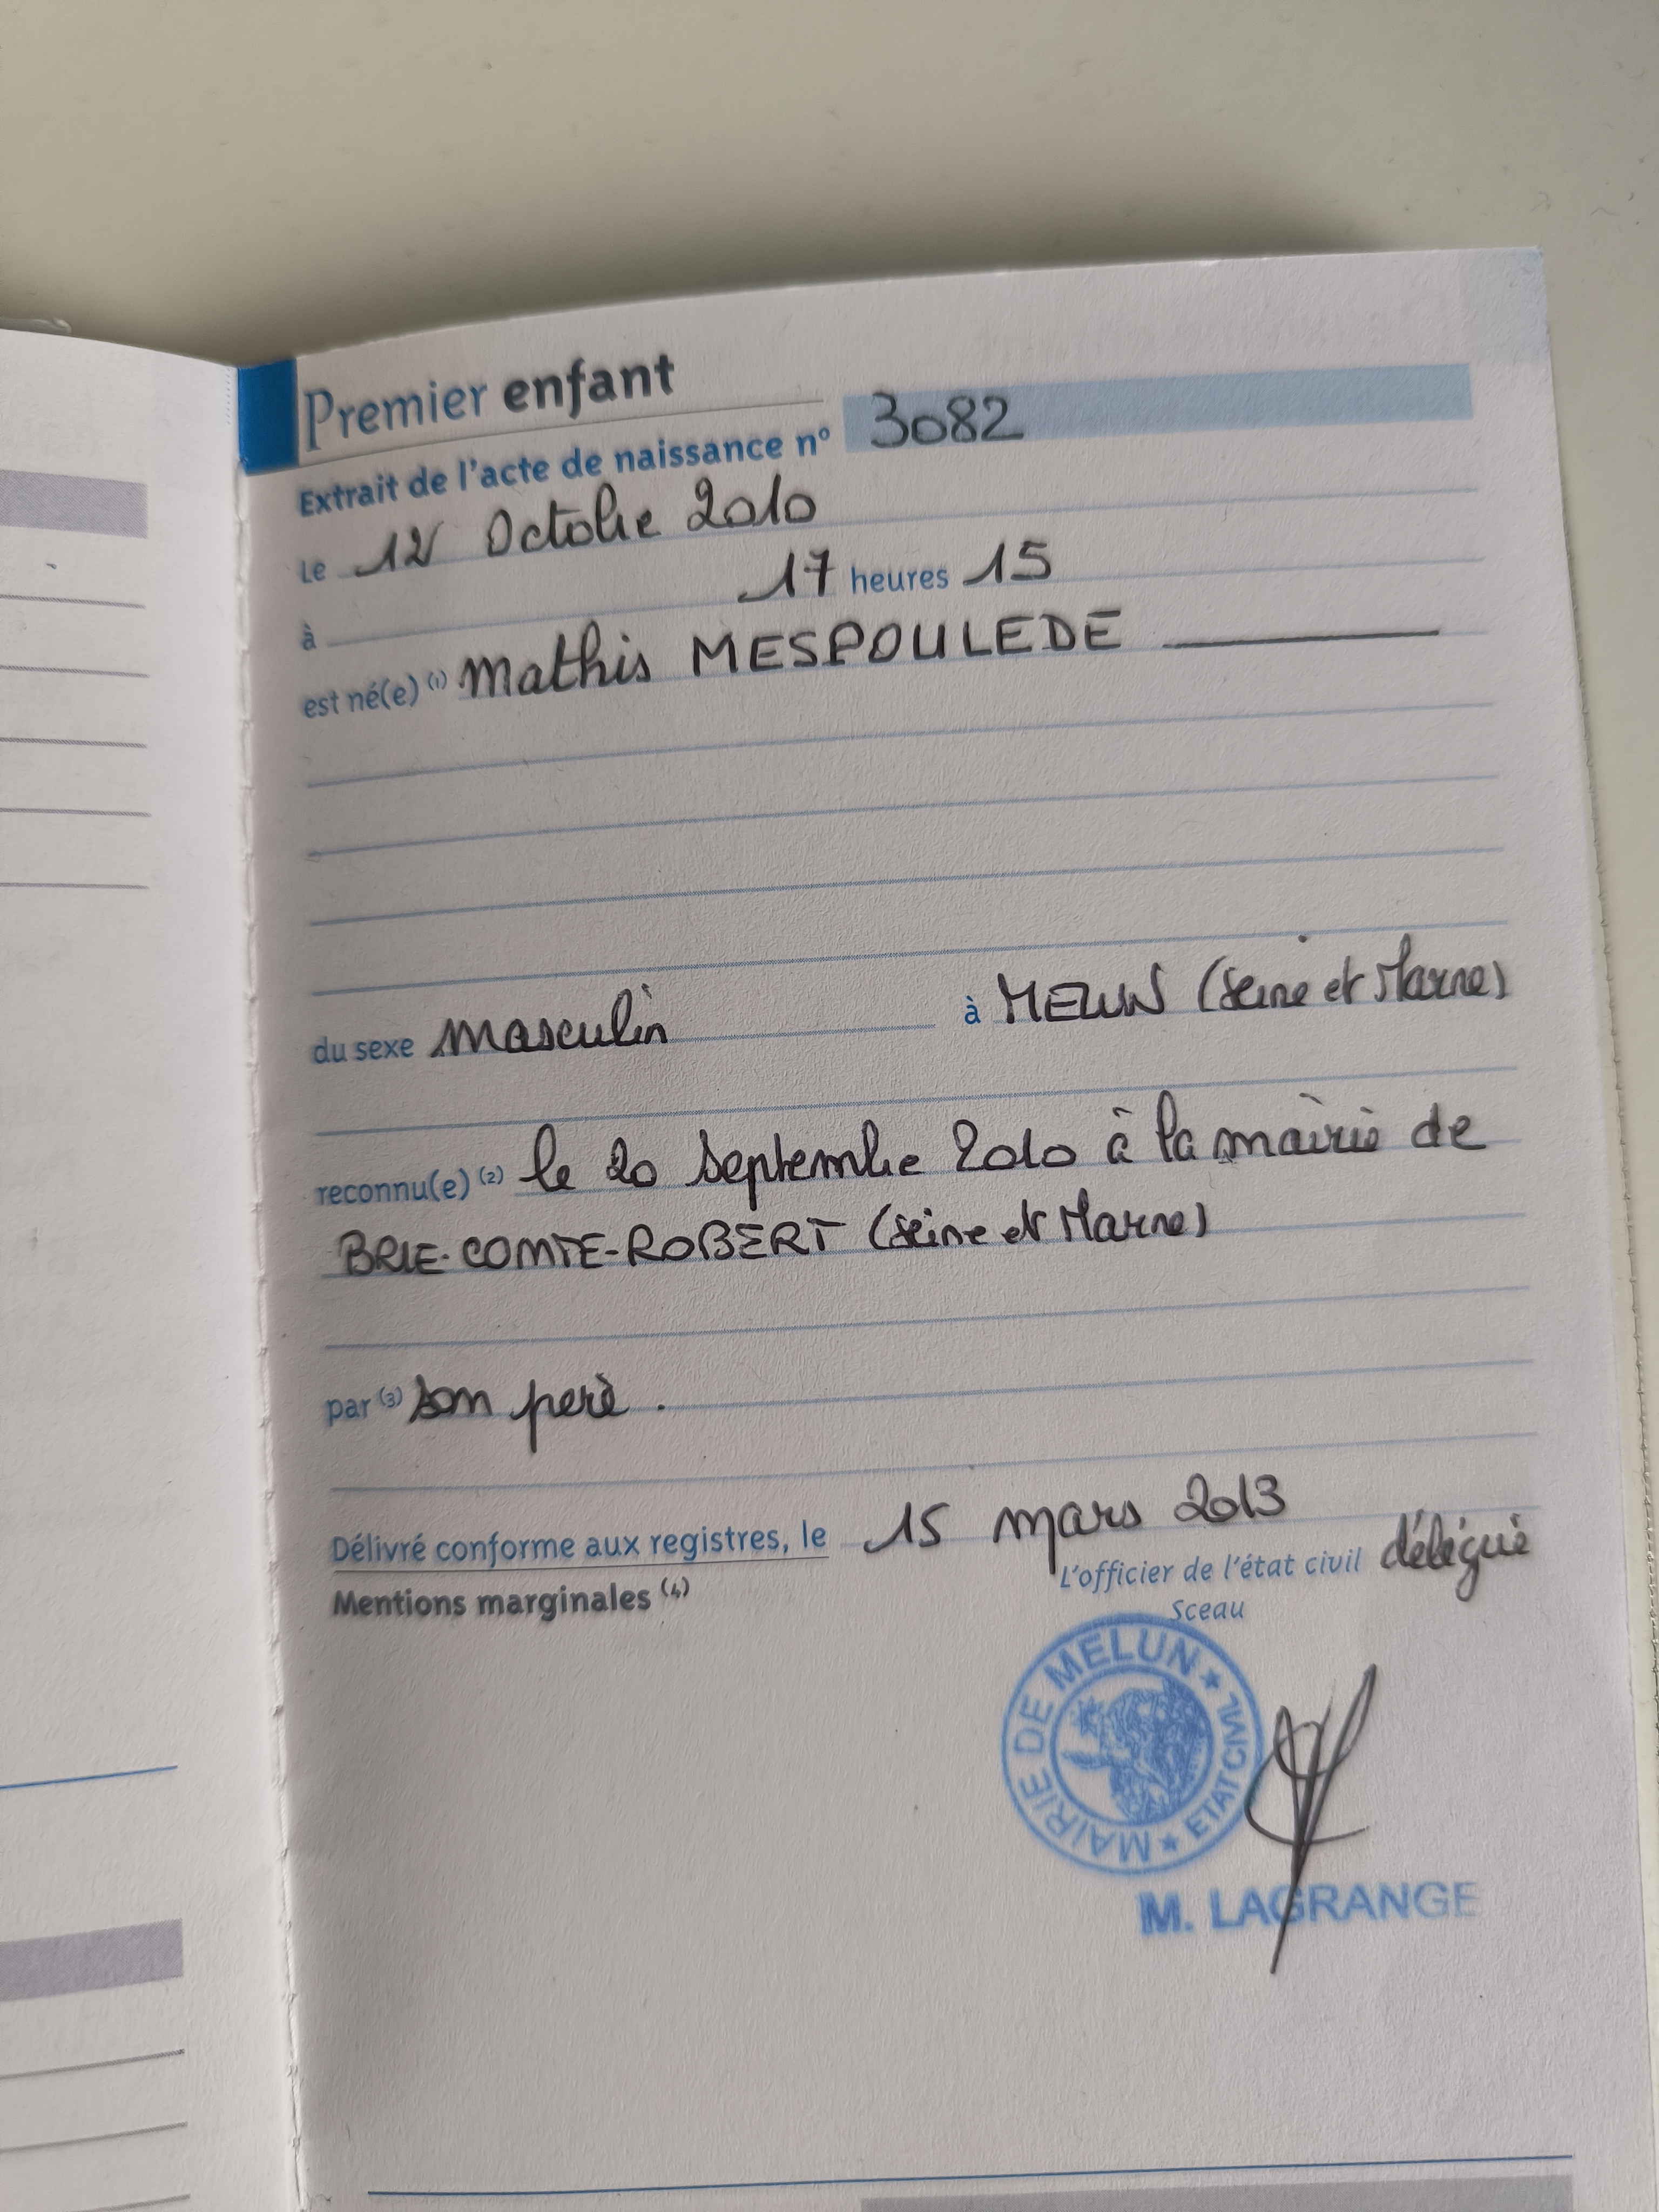 Premier enfant
Extrait de l'acte de naissance n° 3082
Le 12 Octobre 2010
à 17 heures 15
est né(e) (1) Mathis MESPOULEDE
du sexe masculin à MELUN (Seine et Marne)
reconnu(e) (2) le 20 Septembre 2010 à la mairie de
BRIE-COMTE-ROBERT (Seine et Marne)
par (3) son père.
Délivré conforme aux registres, le 15 mars 2013
L'officier de l'état civil délégué
Mentions marginales (4)
Sceau
MAIRIE DE MELUN ★ ETAT CIVIL ★
M. LAGRANGE